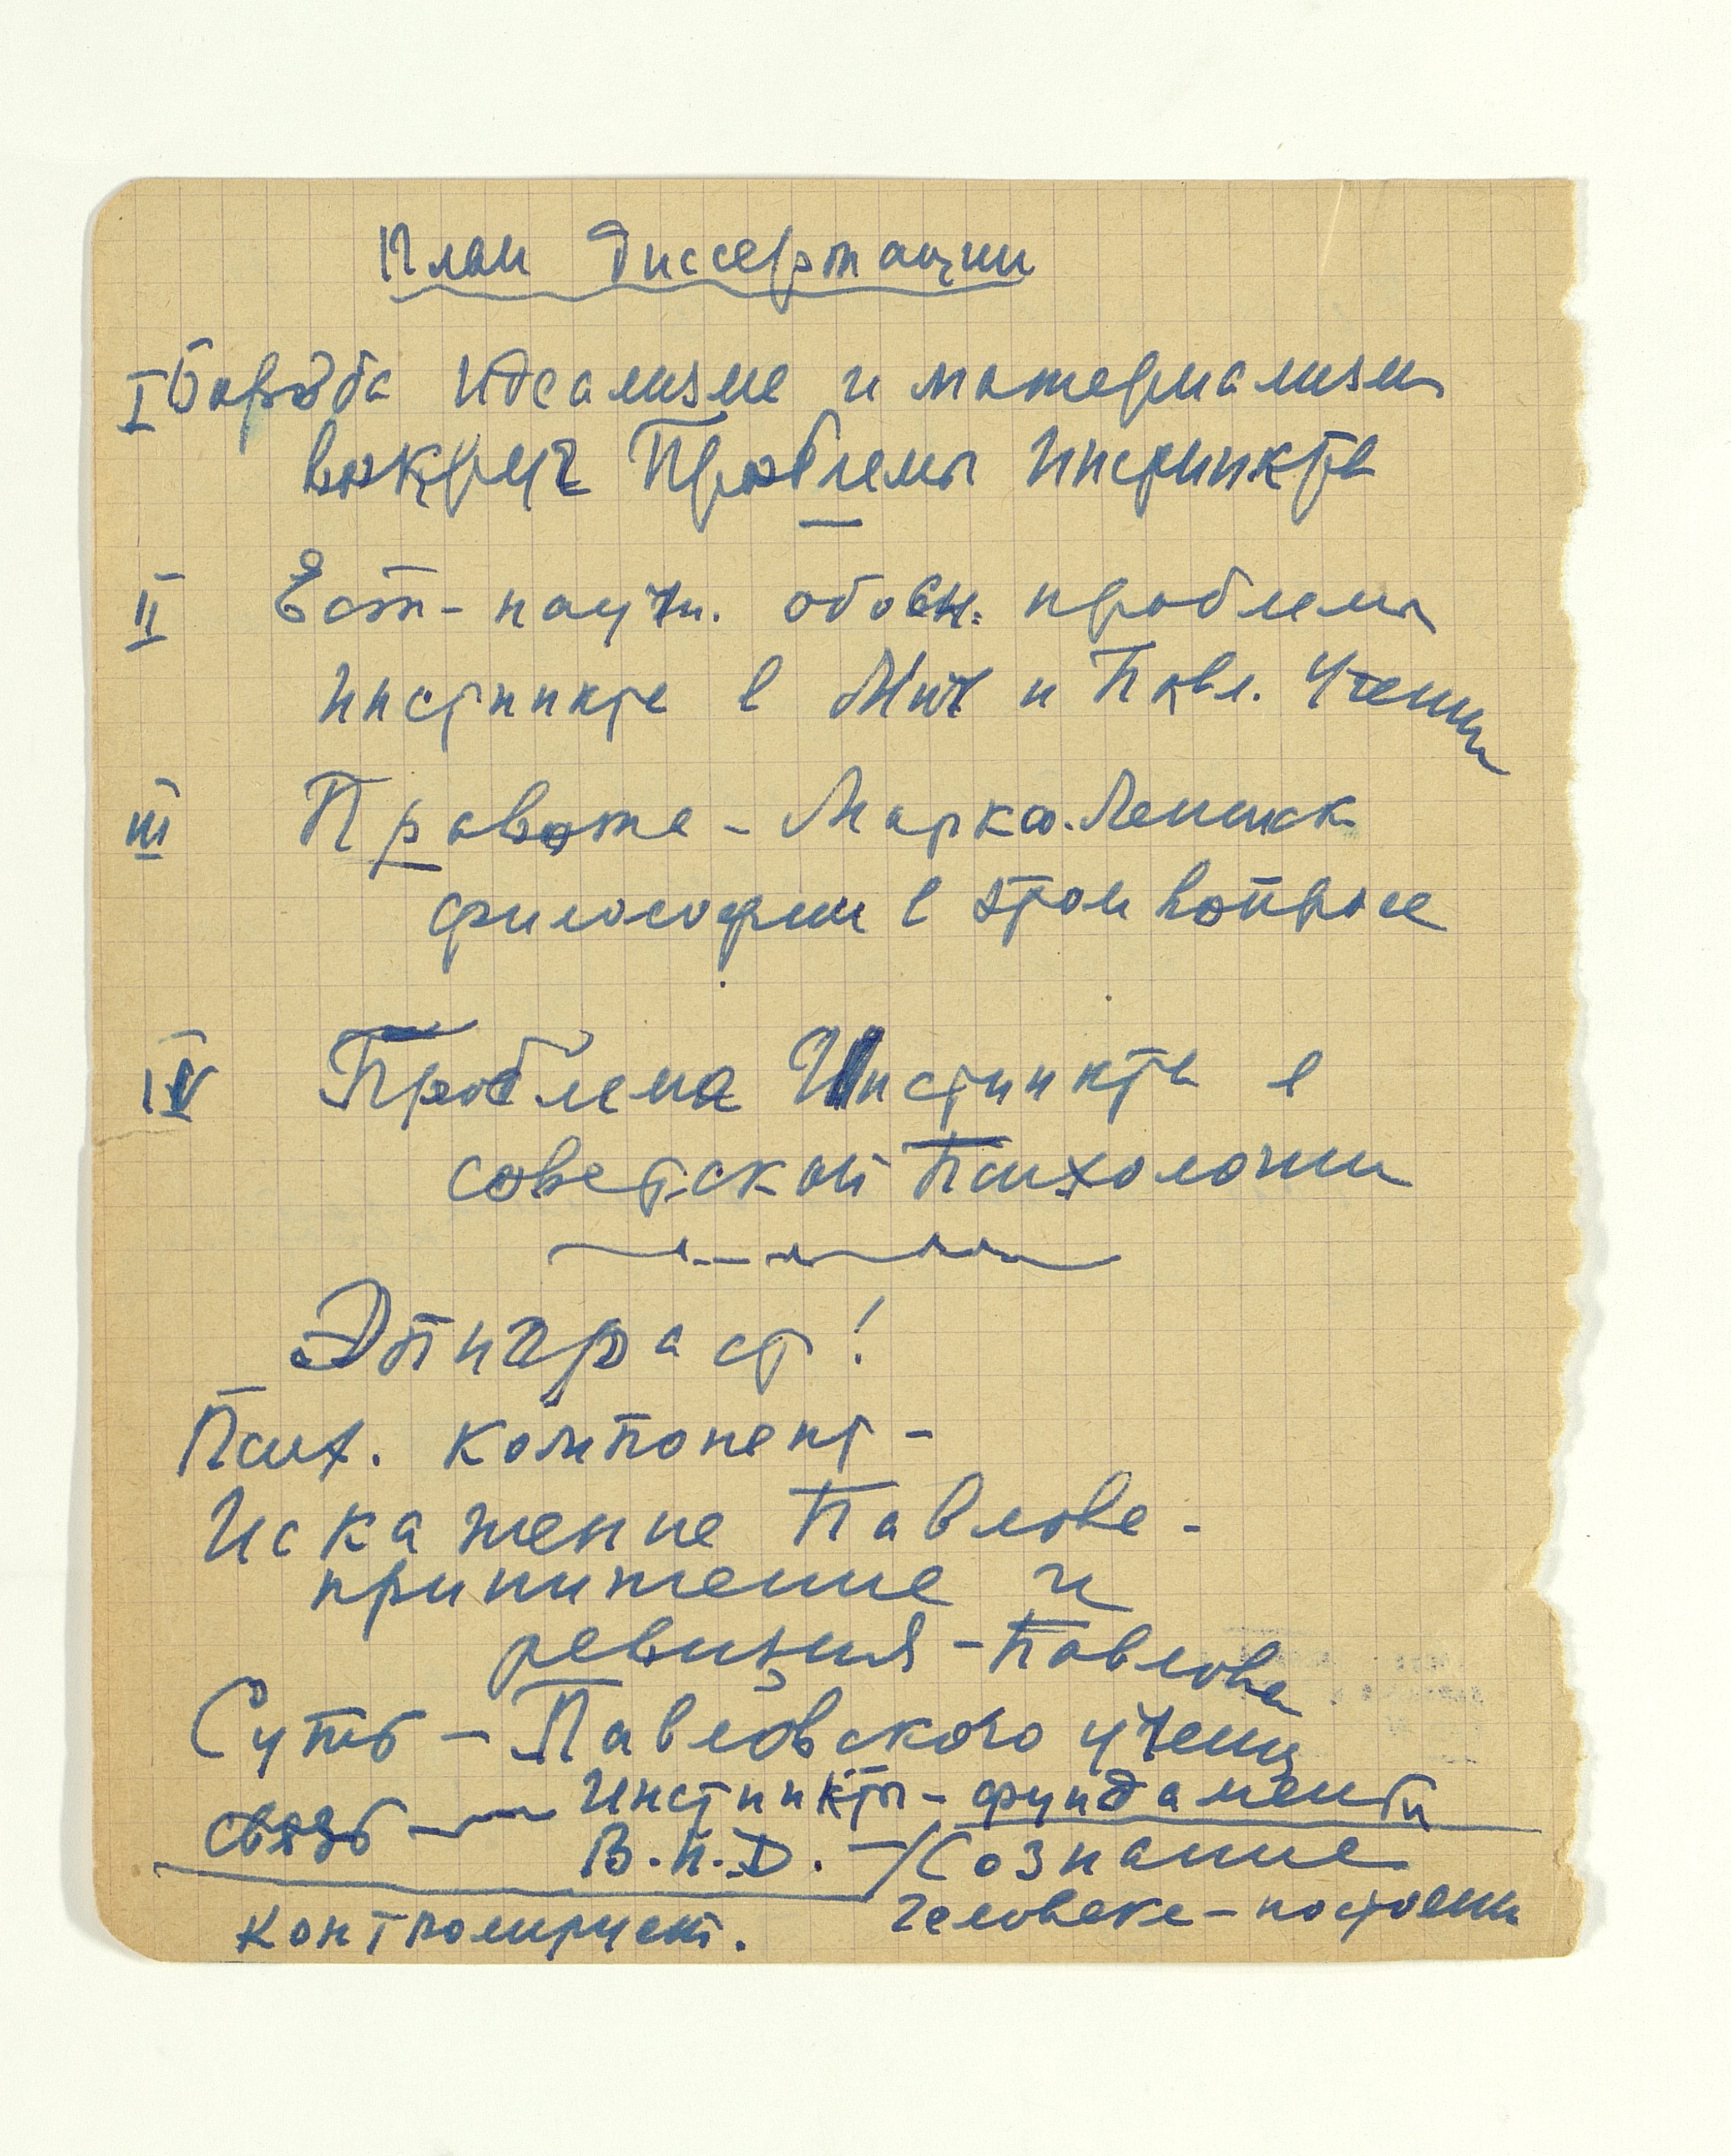 План диссертации
I Борьба идеализме и материализм
вокруг Проблемы Инстинкта
II Ест-научн. обосн. проблемы
инстинкта в Мич и Павл. Учении
III Правота - Маркс. Ленинск
философии в этом вопросе
IV Проблема Инстинкта в
советской Психологии
Эпиграф!
Псих. компонент -
Искажение Павлова -
принижение и
ревизия - Павлова
Суть - Павловского учения
связь — Инстинкты - фундаменты
В.Н.Д. - / Сознание
Контролирует. человека -